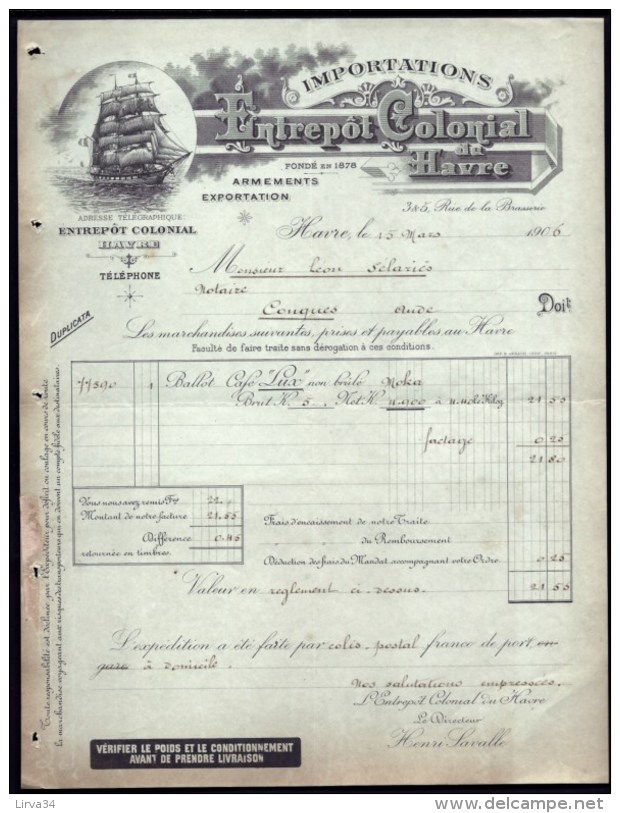 IMPORTATIONS
Entrepôt Colonial
du
Havre
FONDÉ EN 1878
ARMEMENTS
EXPORTATION
3&5, Rue de la Brasserie
ADRESSE TÉLÉGRAPHIQUE:
ENTREPÔT COLONIAL
HAVRE
TÉLÉPHONE
Havre, le 15 Mars 1906
Monsieur Léon Sclariès
Notaire
Conques Aude
Doit
DUPLICATA
Les marchandises suivantes, prises et payables au Havre
Faculté de faire traite sans dérogation à ces conditions.
77590 1 Ballot Café "Lux" non brûlé Moka
Brut K 5 Net K 4.900 à 4.40 le Kilog 21 55
factage 0 25
21 80
Vous nous avez remis Frs 22
Montant de notre facture 21.55
Différence 0.45
retournée en timbres.
Frais d'encaissement de notre Traite
du Remboursement
Déduction des frais du Mandat accompagnant votre Ordre 0 25
21 55
Valeur en règlement ci-dessus.
L'expédition a été faite par colis-postal franco de port, en
gare à domicile.
Nos salutations empressées.
L'Entrepôt Colonial du Havre
Le Directeur
Henri Lavalle
VÉRIFIER LE POIDS ET LE CONDITIONNEMENT
AVANT DE PRENDRE LIVRAISON
Toute responsabilité est déclinée par l'Expéditeur pour déficit ou coulage en cours de route
la marchandise voyageant aux risques des transporteurs qui en doivent un compte fidèle aux destinataires.
Lirva34
delcampe.net